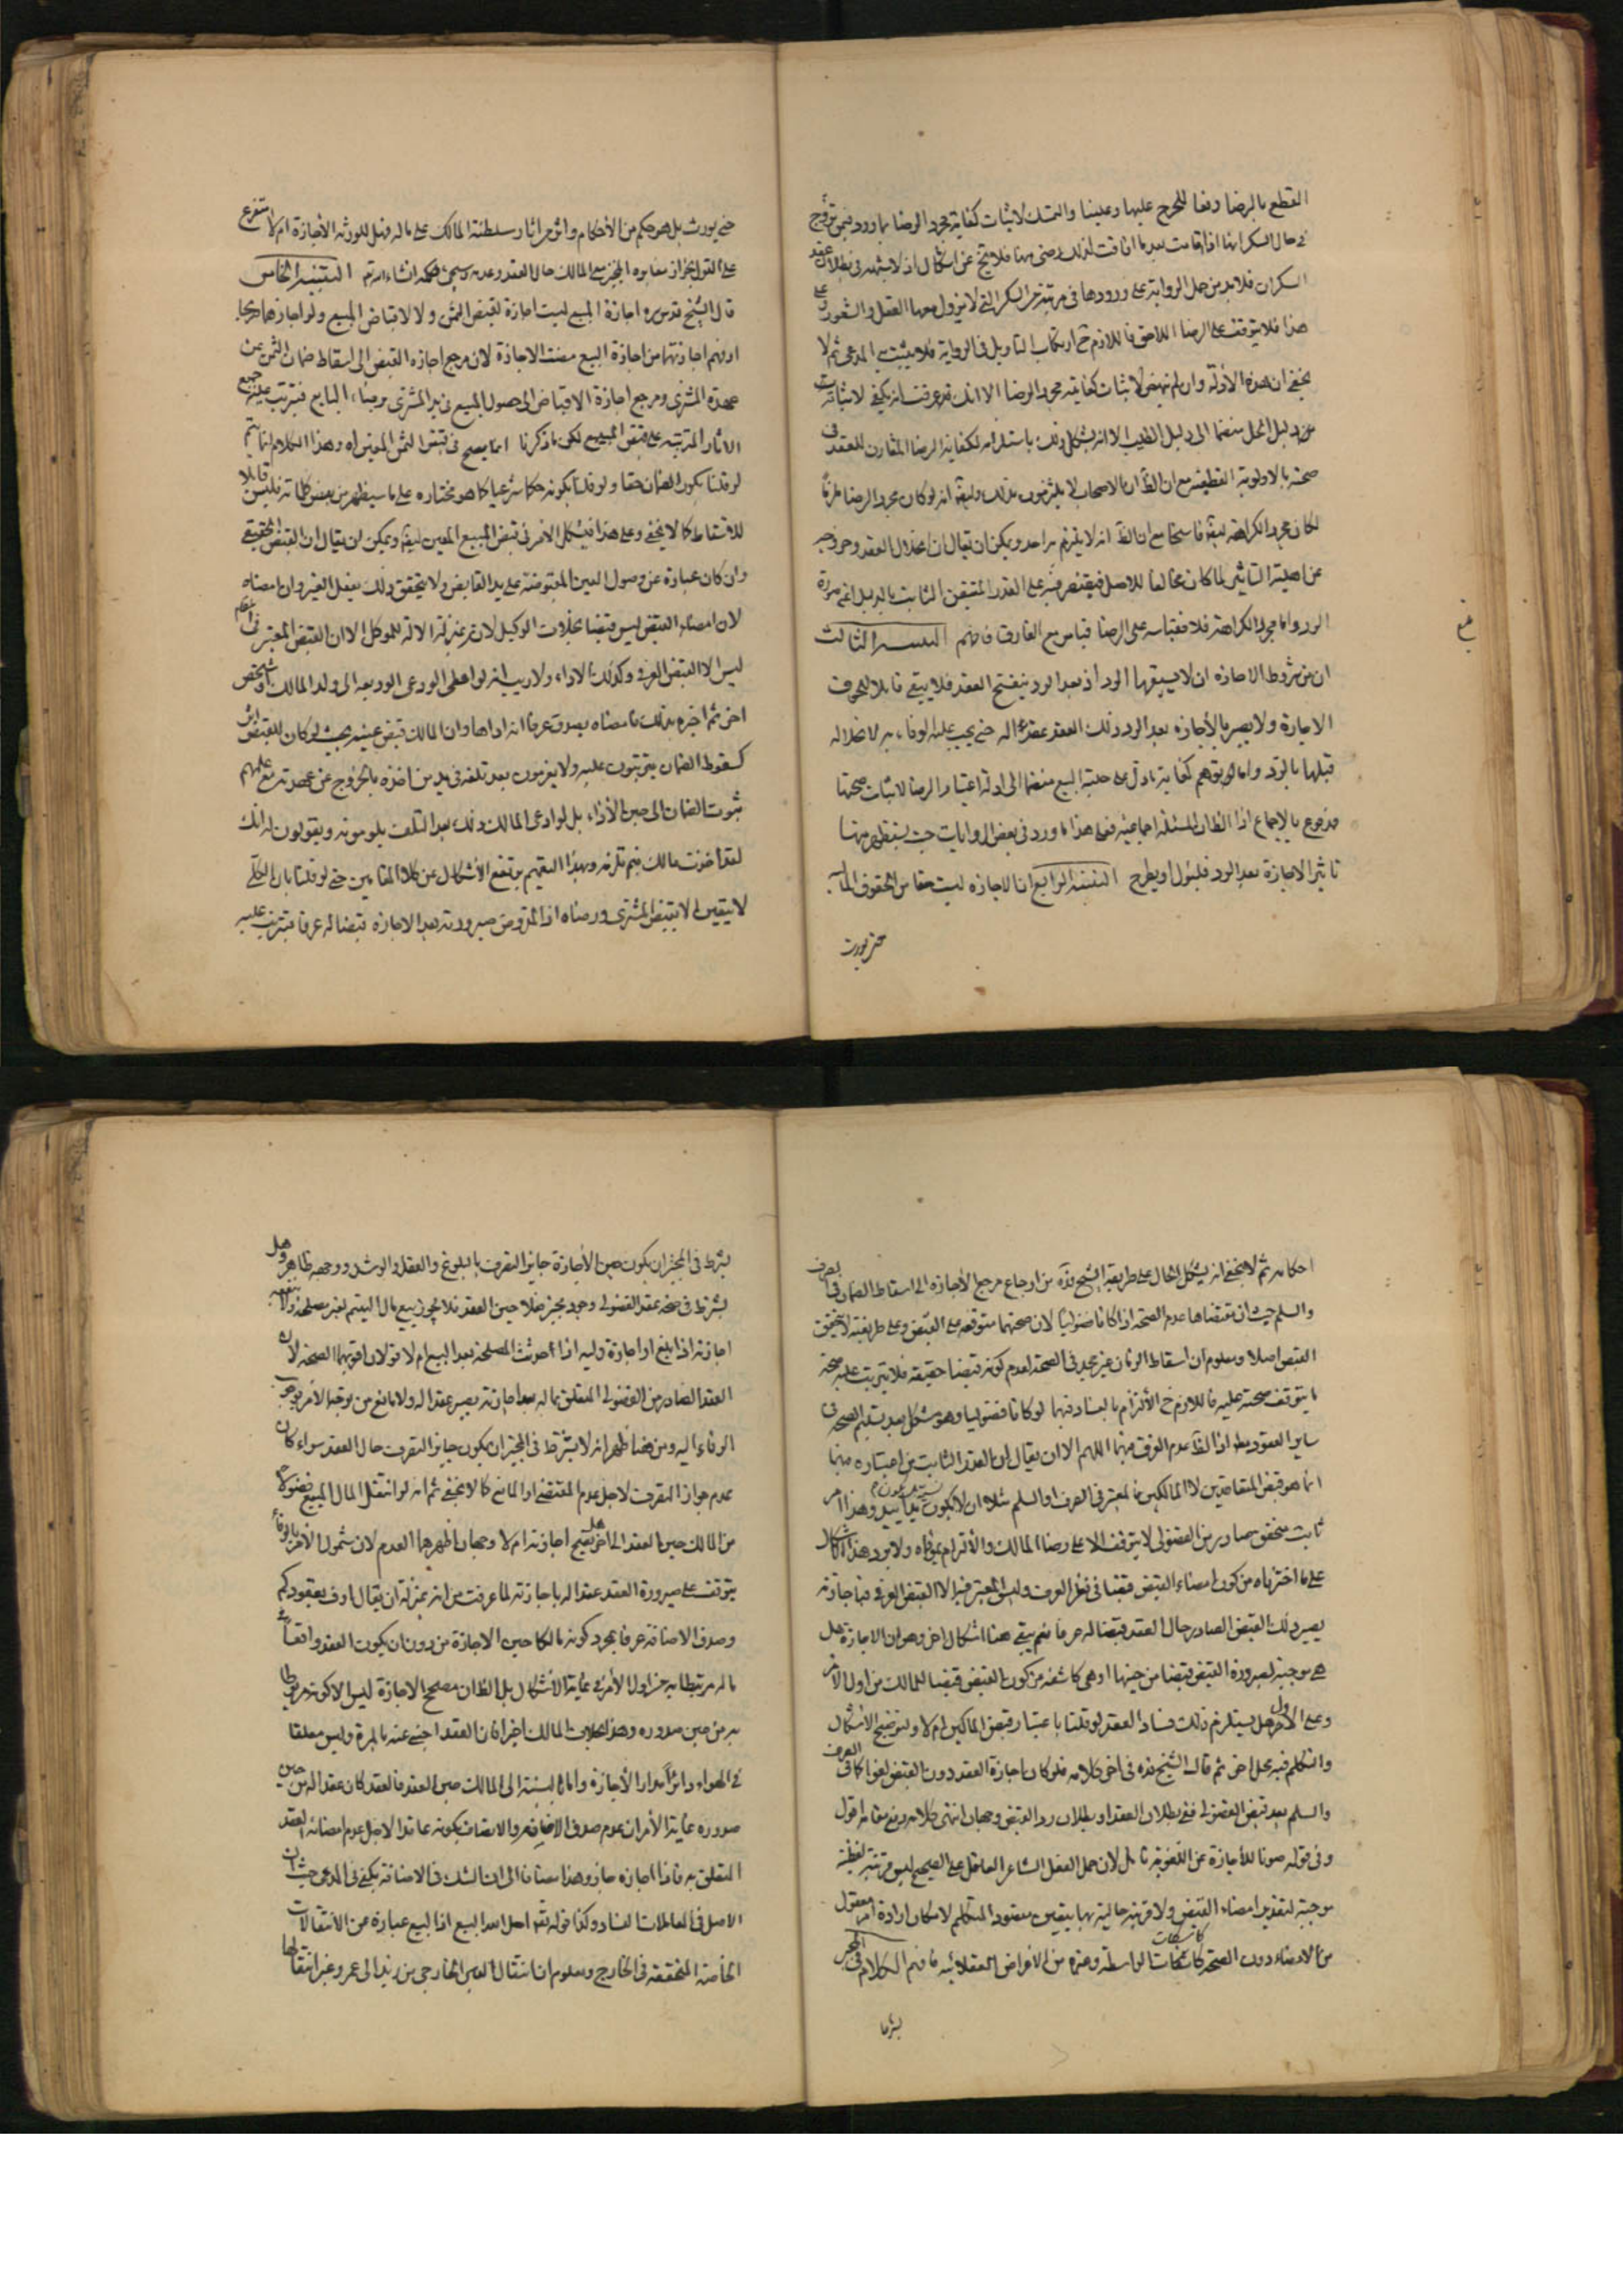 القطع بالرضا دفعا للحرج عليها وعلينا والتمسك لاثبات كفاية مجرد الرضا بما ورد فيمن تزوج
في حال السكر انها اذا اقامت بعد ما افاقت لذلك رضى منها فلا يخ عن اشكال اذ لا شبهة في بطلان عقد
السكران فلا بد من حمل الرواية على ورودها في مرتبة من السكر التي لا يزول معها العقل والشعور على
هذا فلا يتوقف على الرضا اللاحق فاللازم ح ارتكاب التاويل في الرواية فلا يثبت به المدعى ثم لا
يخفى ان هذه الادلة وان لم تنهض لاثبات كفاية مجرد الرضا الا انك قد عرفت انه يكفي لاثباته
من دليل الحل منضما الى دليل الطيب الا انه يشكل ذلك باستلزامه لكفاية الرضا المقارن للعقد في
صحته بالاولوية القطعية مع ان الظ ان الاصحاب لا يلتزمون بذلك وايضا انه لو كان مجرد الرضا ملزما
لكان مجرد الكراهة ايضا فاسخا مع ان الظ انه لا يلتزم به احد ويمكن ان يقال ان انحلال العقد وخروجه
عن اهلية التاثير لما كان مخالفا للاصل فيقتصر فيه على القدر المتيقن الثابت بالدليل اعني صورة
الرد واما مجرد الكراهة فلا فقياسه على الرضا قياس مع الفارق فافهم التنبيه الثالث
ان من شروط الاجازه ان لا يسبقها الرد اذ بعد الرد ينفسخ العقد فلا يبقى قابلا للحوق
الاجازة ولا يصير بالأجازه بعد الرد ذلك العقد عقدا له حتى يجب عليه الوفاء به لانحلاله
قبلها بالرد واما توهم كفاية ما دل على حلية البيع منضما الى ادلة اعتبار الرضا لاثبات صحتها
مدفوع بالاجماع اذ الظ ان المسئلة اجماعية فعلى هذا ما ورد في بعض الروايات حيث يستظهر منها
تاثير الاجازة بعد الرد فليؤل او يطرح التنبيه الرابع ان الاجازه ليست حقا من الحقوق المالية
حتى يورث
حتى يورث بل هو حكم من الأحكام واثر من اثار سلطنة المالك على ماله فهل للورثه الأجازة ام لا متفرع
على القول بجواز مغايره المجيز مع المالك حال العقد وعدمه وسيجئ حكمه انشاء الله تم التنبيه الخامس
قال الشيخ قدس سره اجازة البيع ليست اجازة لقبض الثمن ولا لاقباض المبيع ولو اجازهما صريحا
او فهم اجازتهما من اجازة البيع مضت الاجازة لان مرجع اجازه القبض الى اسقاط ضمان الثمن عن
عهدة المشتري ومرجع اجازة الاقباض الى حصول المبيع في يد المشتري برضاء البايع فيترتب عليه جميع
الاثار المترتبه على قبض المبيع لكن ما ذكرنا انما يصح في قبض الثمن المعين اه وهذا الكلام انما يتم
لو قلنا بكون الضمان حقا ولو قلنا بكونه حكما شرعيا كما هو مختاره على ما سيظهر من بعض كلماته فليس قابلا
للاسقاط كما لا يخفى وعلى هذا فيشكل الامر في قبض المبيع المعين ايضا ويمكن ان يقال ان القبض الحقيقي
وان كان عبارة عن وصول العين المقبوضة على يد القابض ولا يتحقق ذلك بفعل الغير وان امضاه
لان امضاء القبض ليس قبضا بخلاف الوكيل لانه بمنزلة الالة للموكل الا ان القبض المعتبر في المقام
ليس الا القبض العرفي وكذلك الاداء ولا ريب انه لو اعطى الودعى الوديعه الى ولد المالك او شخص
اخر ثم اخبره بذلك فامضاه يصدق عرفا انه اداها وان المالك قبض عينه بحيث لو كان للقبض اثر
كسقوط الضمان يترتبون عليه ولا يغرمون بعد تلفه في يد من اخذه بالخروج عن عهدته مع علمهم
ثبوت الضمان الى حين الأداء بل لو ادعى المالك ذلك بعد التلف يلومونه ويقولون له انك
لقد اخذت مالك فبم تلزمه وبهذا التعميم يرتفع الأشكال عن كلا المقامين حتى لو قلنا بان الكلي
لا يتعين الا بقبض المشتري ورضاه اذ المفروض صيرورته بعد الاجازه قبضا له عرفا فيترتب عليه
احكامه ثم لا يخفى انه يشكل الحال على طريقة الشيخ قده من ارجاع مرجع الأجازه الى اسقاط الضمان في الصرف
والسلم حيث ان مقتضاها عدم الصحة اذا كانا فضوليا لان صحتهما متوقفه على القبض وعلى طريقته لا يتحقق
القبض اصلا ومعلوم ان اسقاط الضمان غير مجد في الصحة لعدم كونه قبضا حقيقة فلا يترتب عليه صحة
ما يتوقف صحته عليه فاللازم ح الألتزام بالفساد فيهما لو كانا فضوليا وهو مشكل بعد تسليم الصحة في
ساير العقود بعد اذ الظ عدم الفرق بينهما اللهم الا ان يقال ان القدر الثابت من اعتباره فيهما
انما هو قبض المتعاقدين لا المالكين فالمعتبر في الصرف او السلم مثلا ان لا يكون يدا بيد وهذا امر
ثابت متحقق صادر من الفضولى لا يتوقف الا على رضا المالك والألتزام بمقتضاه ولا يرد هذا الاشكال
على ما اخترناه من كون امضاء القبض قبضا في نظر العرف وليس المعتبر فيه الا القبض العرفي فباجازته
يصير ذلك القبض الصادر حال العقد قبضا له عرفا نعم يبقى هنا اشكال اخر وهو ان الاجازة هل
هي موجبة لصيرورة القبض قبضا من حينها او هي كاشفه من كون القبض قبضا للمالك من اول الامر
وعلى الأول هل يستلزم ذلك فساد العقد لو قلنا باعتبار قبض المالكين ام لا ولتوضيح الاشكال
والتكلم فيه محل اخر ثم قال الشيخ قده في اخر كلامه فلو كان اجازة العقد دون القبض لغوا كما في الصرف
والسلم بعد قبض الفضولى ففي بطلان العقد او بطلان رد القبض وجهان انتهى كلامه رفع مقامه اقول
وفي قوله صونا للأجازة عن اللغوية تامل لان حمل الفعل الشاعر العاقل على الصحيح ليس قرينة لفظية
موجبة لتقدير امضاء القبض ولا قرينة حالية بها يتعين مقصود المتكلم لامكان ارادة امر معقول
من الامضاء دون الصحة كاسكات الواسطة وغيره من الأغراض العقلائيه فافهم الكلام في المجيز
يشترط
يشترط في المجيز ان يكون حين الأجازة جايز التصرف بالبلوغ والعقل والرشد ووجهه ظاهر وهل
يشترط في صحة عقد الفضولى وجود مجيز فعلا حين العقد فلا يجوز بيع مال اليتيم لغير مصلحة ولا ينفعه
اجازته اذا بلغ او اجازة وليه اذا أحدثت المصلحة بعد البيع ام لا قولان اقويهما الصحة لان
العقد الصادر من الفضولى المتعلق بماله بعد اجازته يصير عقدا له ولا مانع من توجه الامر بوجوب
الوفاء اليه ومن هنا ظهر انه لا يشترط في المجيز ان يكون جايز التصرف حال العقد سواء كان
عدم جواز التصرف لاجل عدم المقتضي او المانع كما لا يخفى ثم انه لو انتقل المال المبيع فضولا
من المالك حين العقد الى اخر هل يصح اجازته ام لا وجهان اظهرهما العدم لان شمول الأمر بالوفاء
يتوقف على صيرورة العقد عقدا له باجازته لما عرفت من انه بمنزلة ان يقال اوف بعقودكم
وصدق الاضافة عرفا بمجرد كونه مالكا حين الاجازة من دون ان يكون العقد واقعا على
ماله مرتبطا به من اول الأمر في غاية الأشكال بل الظ ان مصحح الاجازة ليس الا كونه مربوطا
به من حين صدوره وهذا بخلاف المالك اخيرا فان العقد اجنبي عنه بالمرة وليس معلقا
في الهواء دائرا مدار الأجازة واما بالنسبة الى المالك حين العقد فالعقد كان عقدا له من حين
صدوره غاية الأمر ان عدم صدق الاضافه والاتصاف بكونه عاقدا لاجل عدم امضائه العقد
المتعلق به فاذا اجازه جاز وهذا مضافا الى ان الشك في الاضافة يكفي في المدعى حيث ان
الاصل في المعاملات الفساد وكذا قوله تع احل الله البيع اذ البيع عبارة عن الأنتقالات
الخاصة المتحققة في الخارج ومعلوم ان انتقال العين الخارجي من زيد الى عمرو غير انتقالها